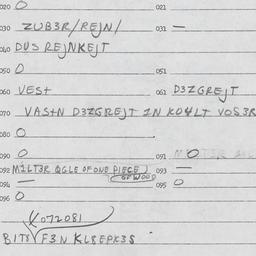 020 O 021
030 ZUB3R/REJN/ 031 —
040 DUS REJNKEJT
050 O 051
060 VEST 061 D3ZGREJT
070 VAS+N D3ZGREJT IN KO4LT VOS3R
080 O
090 O 091 O
092 MILT3R QGLE OF ONE PIECE 093 —
OF WOOD
094 — 095 O
096 O
072081
BITS F3N KLSEPK3S